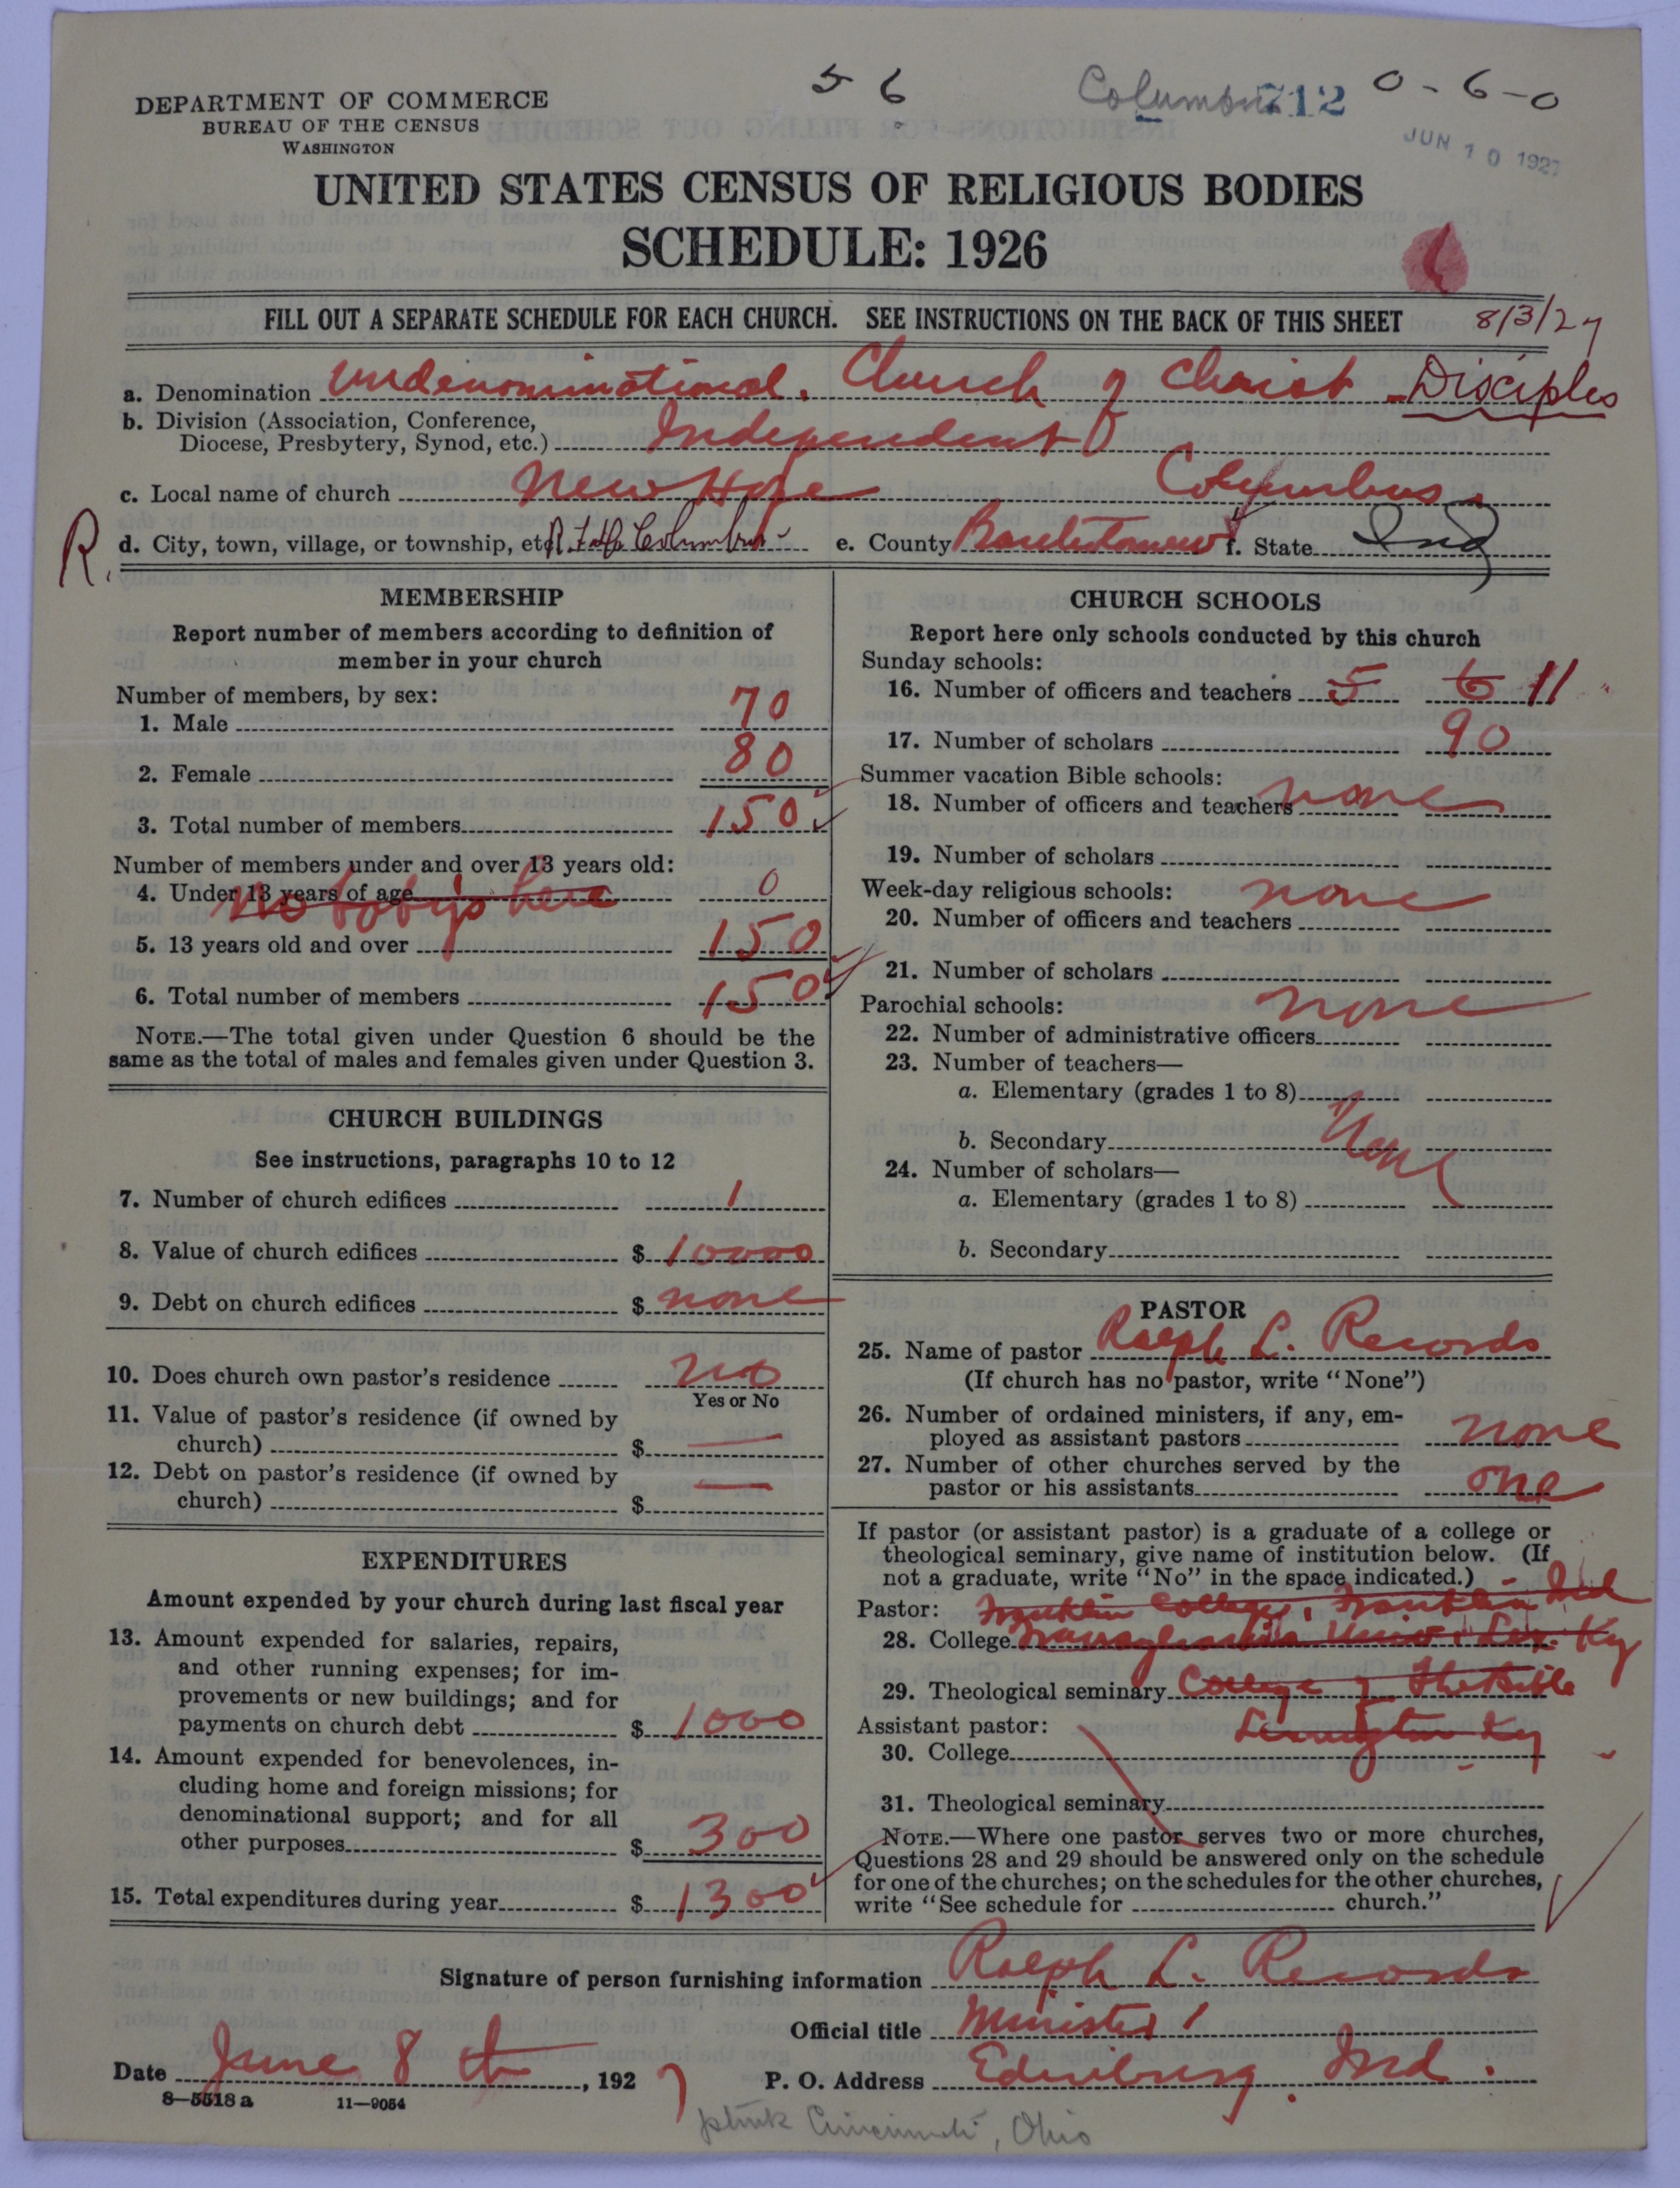 5 6
Columbus 712
0-6-0
DEPARTMENT OF COMMERCE
BUREAU OF THE CENSUS
WASHINGTON
JUN 10 1927
UNITED STATES CENSUS OF RELIGIOUS BODIES
SCHEDULE: 1926
FILL OUT A SEPARATE SCHEDULE FOR EACH CHURCH. SEE INSTRUCTIONS ON THE BACK OF THIS SHEET 8/3/27
a. Denomination Undenominational. Church of Christ - Disciples
b. Division (Association, Conference,
Diocese, Presbytery, Synod, etc.) Independent
c. Local name of church New Hope Columbus.
R. d. City, town, village, or township, etc. Columbus e. County Bartholomew f. State Ind
MEMBERSHIP
Report number of members according to definition of
member in your church
Number of members, by sex:
1. Male 70
2. Female 80
3. Total number of members 150
Number of members under and over 13 years old:
4. Under 13 years of age 0
No babys here
5. 13 years old and over 150
6. Total number of members 150
NOTE.—The total given under Question 6 should be the
same as the total of males and females given under Question 3.
CHURCH BUILDINGS
See instructions, paragraphs 10 to 12
7. Number of church edifices 1
8. Value of church edifices $ 10000
9. Debt on church edifices $ none
10. Does church own pastor's residence no
Yes or No
11. Value of pastor's residence (if owned by
church) $ —
12. Debt on pastor's residence (if owned by
church) $ —
EXPENDITURES
Amount expended by your church during last fiscal year
13. Amount expended for salaries, repairs,
and other running expenses; for im-
provements or new buildings; and for
payments on church debt $ 1000
14. Amount expended for benevolences, in-
cluding home and foreign missions; for
denominational support; and for all
other purposes $ 300
15. Total expenditures during year $ 1300
CHURCH SCHOOLS
Report here only schools conducted by this church
Sunday schools:
16. Number of officers and teachers 5 6 11
17. Number of scholars 90
Summer vacation Bible schools:
18. Number of officers and teachers none
19. Number of scholars
Week-day religious schools: none
20. Number of officers and teachers
21. Number of scholars
Parochial schools: none
22. Number of administrative officers
23. Number of teachers—
a. Elementary (grades 1 to 8)
b. Secondary None
24. Number of scholars—
a. Elementary (grades 1 to 8)
b. Secondary
PASTOR
25. Name of pastor Ralph L. Records
(If church has no pastor, write "None")
26. Number of ordained ministers, if any, em-
ployed as assistant pastors none
27. Number of other churches served by the
pastor or his assistants one
If pastor (or assistant pastor) is a graduate of a college or
theological seminary, give name of institution below. (If
not a graduate, write "No" in the space indicated.)
Pastor: Franklin College, Franklin Ind
28. College Transylvania Univ. Lex. Ky
29. Theological seminary College of The Bible
Assistant pastor: Lexington Ky
30. College
31. Theological seminary
NOTE.—Where one pastor serves two or more churches,
Questions 28 and 29 should be answered only on the schedule
for one of the churches; on the schedules for the other churches,
write "See schedule for church."
Signature of person furnishing information Ralph L. Records
Official title Minister
Date June 8th, 1927 P. O. Address Edinburg, Ind.
8-5518 a 11-9054
Cincinnati, Ohio